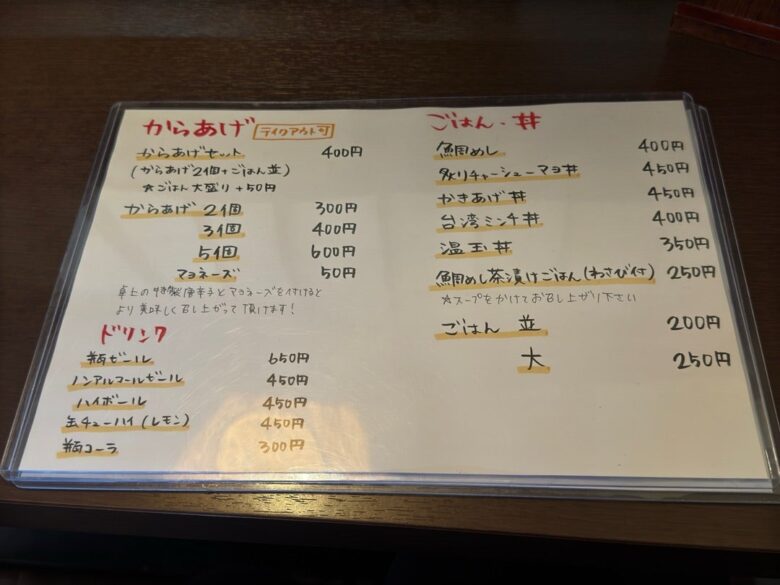 からあげ テイクアウト可
からあげセット 400円
(からあげ2個+ごはん並)
☆ごはん大盛り+50円
からあげ 2個 300円
3個 400円
5個 600円
マヨネーズ 50円
卓上の特製唐辛子とマヨネーズを付けると
より美味しく召し上がって頂けます!
ドリンク
瓶ビール 650円
ノンアルコールビール 450円
ハイボール 450円
缶チューハイ(レモン) 450円
瓶コーラ 300円
ごはん・丼
鯛めし 400円
炙りチャーシューマヨ丼 450円
かきあげ丼 450円
台湾ミンチ丼 400円
温玉丼 350円
鯛めし茶漬けごはん(わさび付) 250円
☆スープをかけてお召し上がり下さい
ごはん 並 200円
大 250円